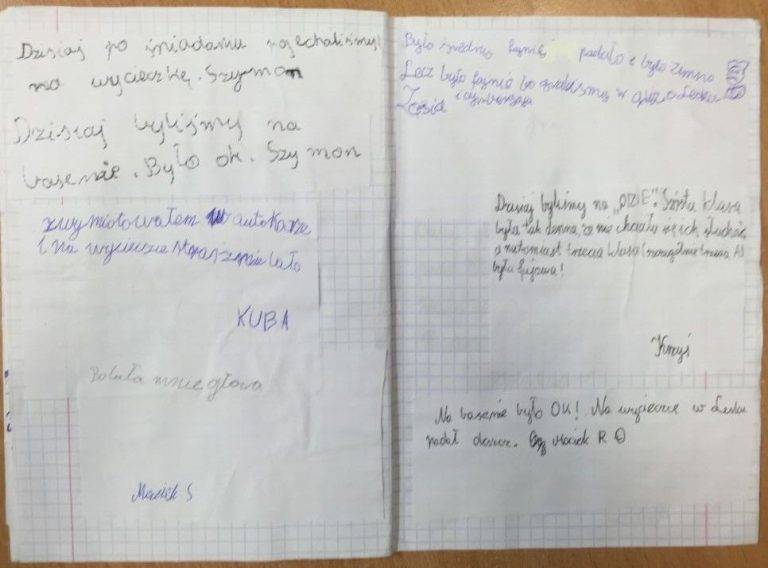 Dzisiaj po śniadaniu pojechaliśmy
na wycieczkę. Szymon
Dzisiaj byliśmy na
basenie. Było ok. Szymon
zwymiotowałem w autokarze
i na wycieczce strasznie lało
KUBA
Bolała mnie głowa
Maciek S
Było padało i było zimno
Lecz było fajnie bo w
Zosia
Dzisiaj byliśmy na „OZIE". Szósta klasa
była tak denna, że nie chciało się ich słuchać,
a natomiast trzecia klasa
była fajowa!
Krzyś
Na basenie było OK! Na wycieczce w Lesku
padał deszcz. Maciek R